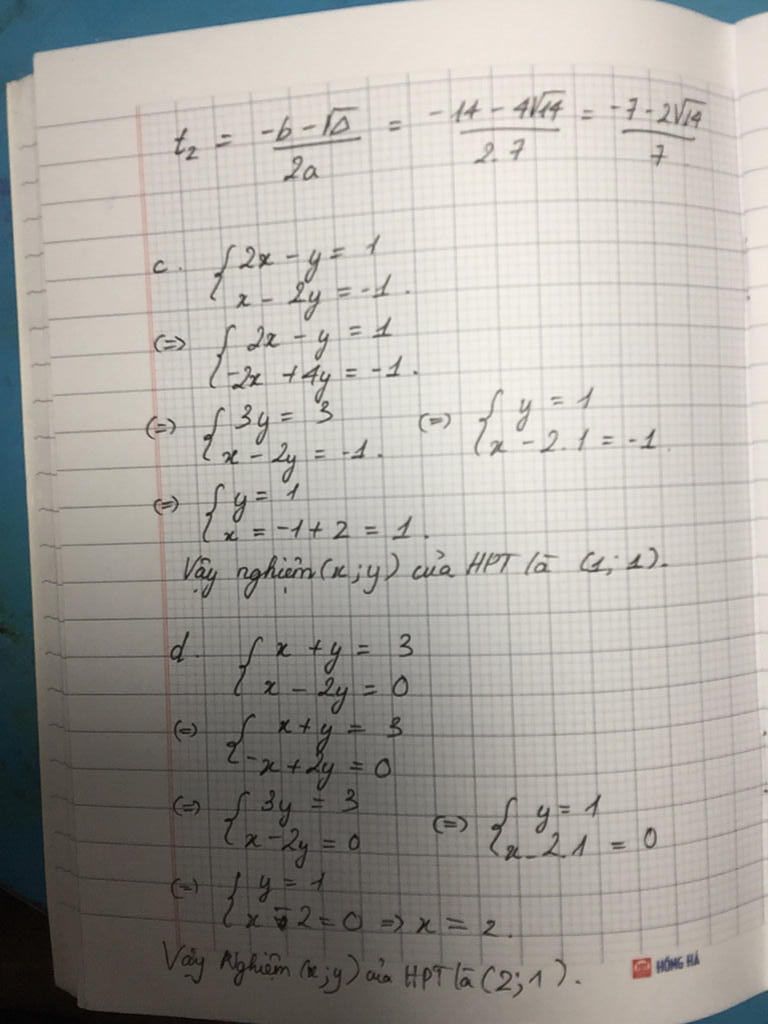 t₂ = (-b - √Δ)/(2a) = (-14 - 4√14)/(2.7) = (-7 - 2√14)/7
c. { 2x - y = 1
x - 2y = -1.
(=) { 2x - y = 1
-2x + 4y = -1.
(=) { 3y = 3
x - 2y = -1.
(=) { y = 1
x - 2.1 = -1
(=) { y = 1
x = -1 + 2 = 1.
Vậy nghiệm (x;y) của HPT là (1; 1).
d. { x + y = 3
x - 2y = 0
(=) { x + y = 3
-x + 2y = 0
(=) { 3y = 3
x - 2y = 0
(=) { y = 1
x - 2.1 = 0
(=) { y = 1
x - 2 = 0 => x = 2.
Vậy Nghiệm (x;y) của HPT là (2; 1).
HỒNG HÀ